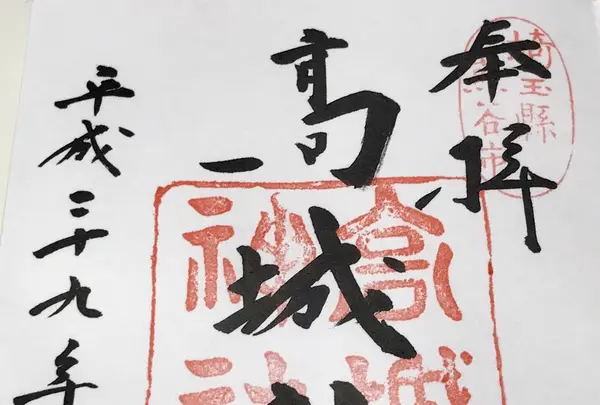 奉拝
埼玉縣
熊谷市
高城
高城
神社
平成二十九年